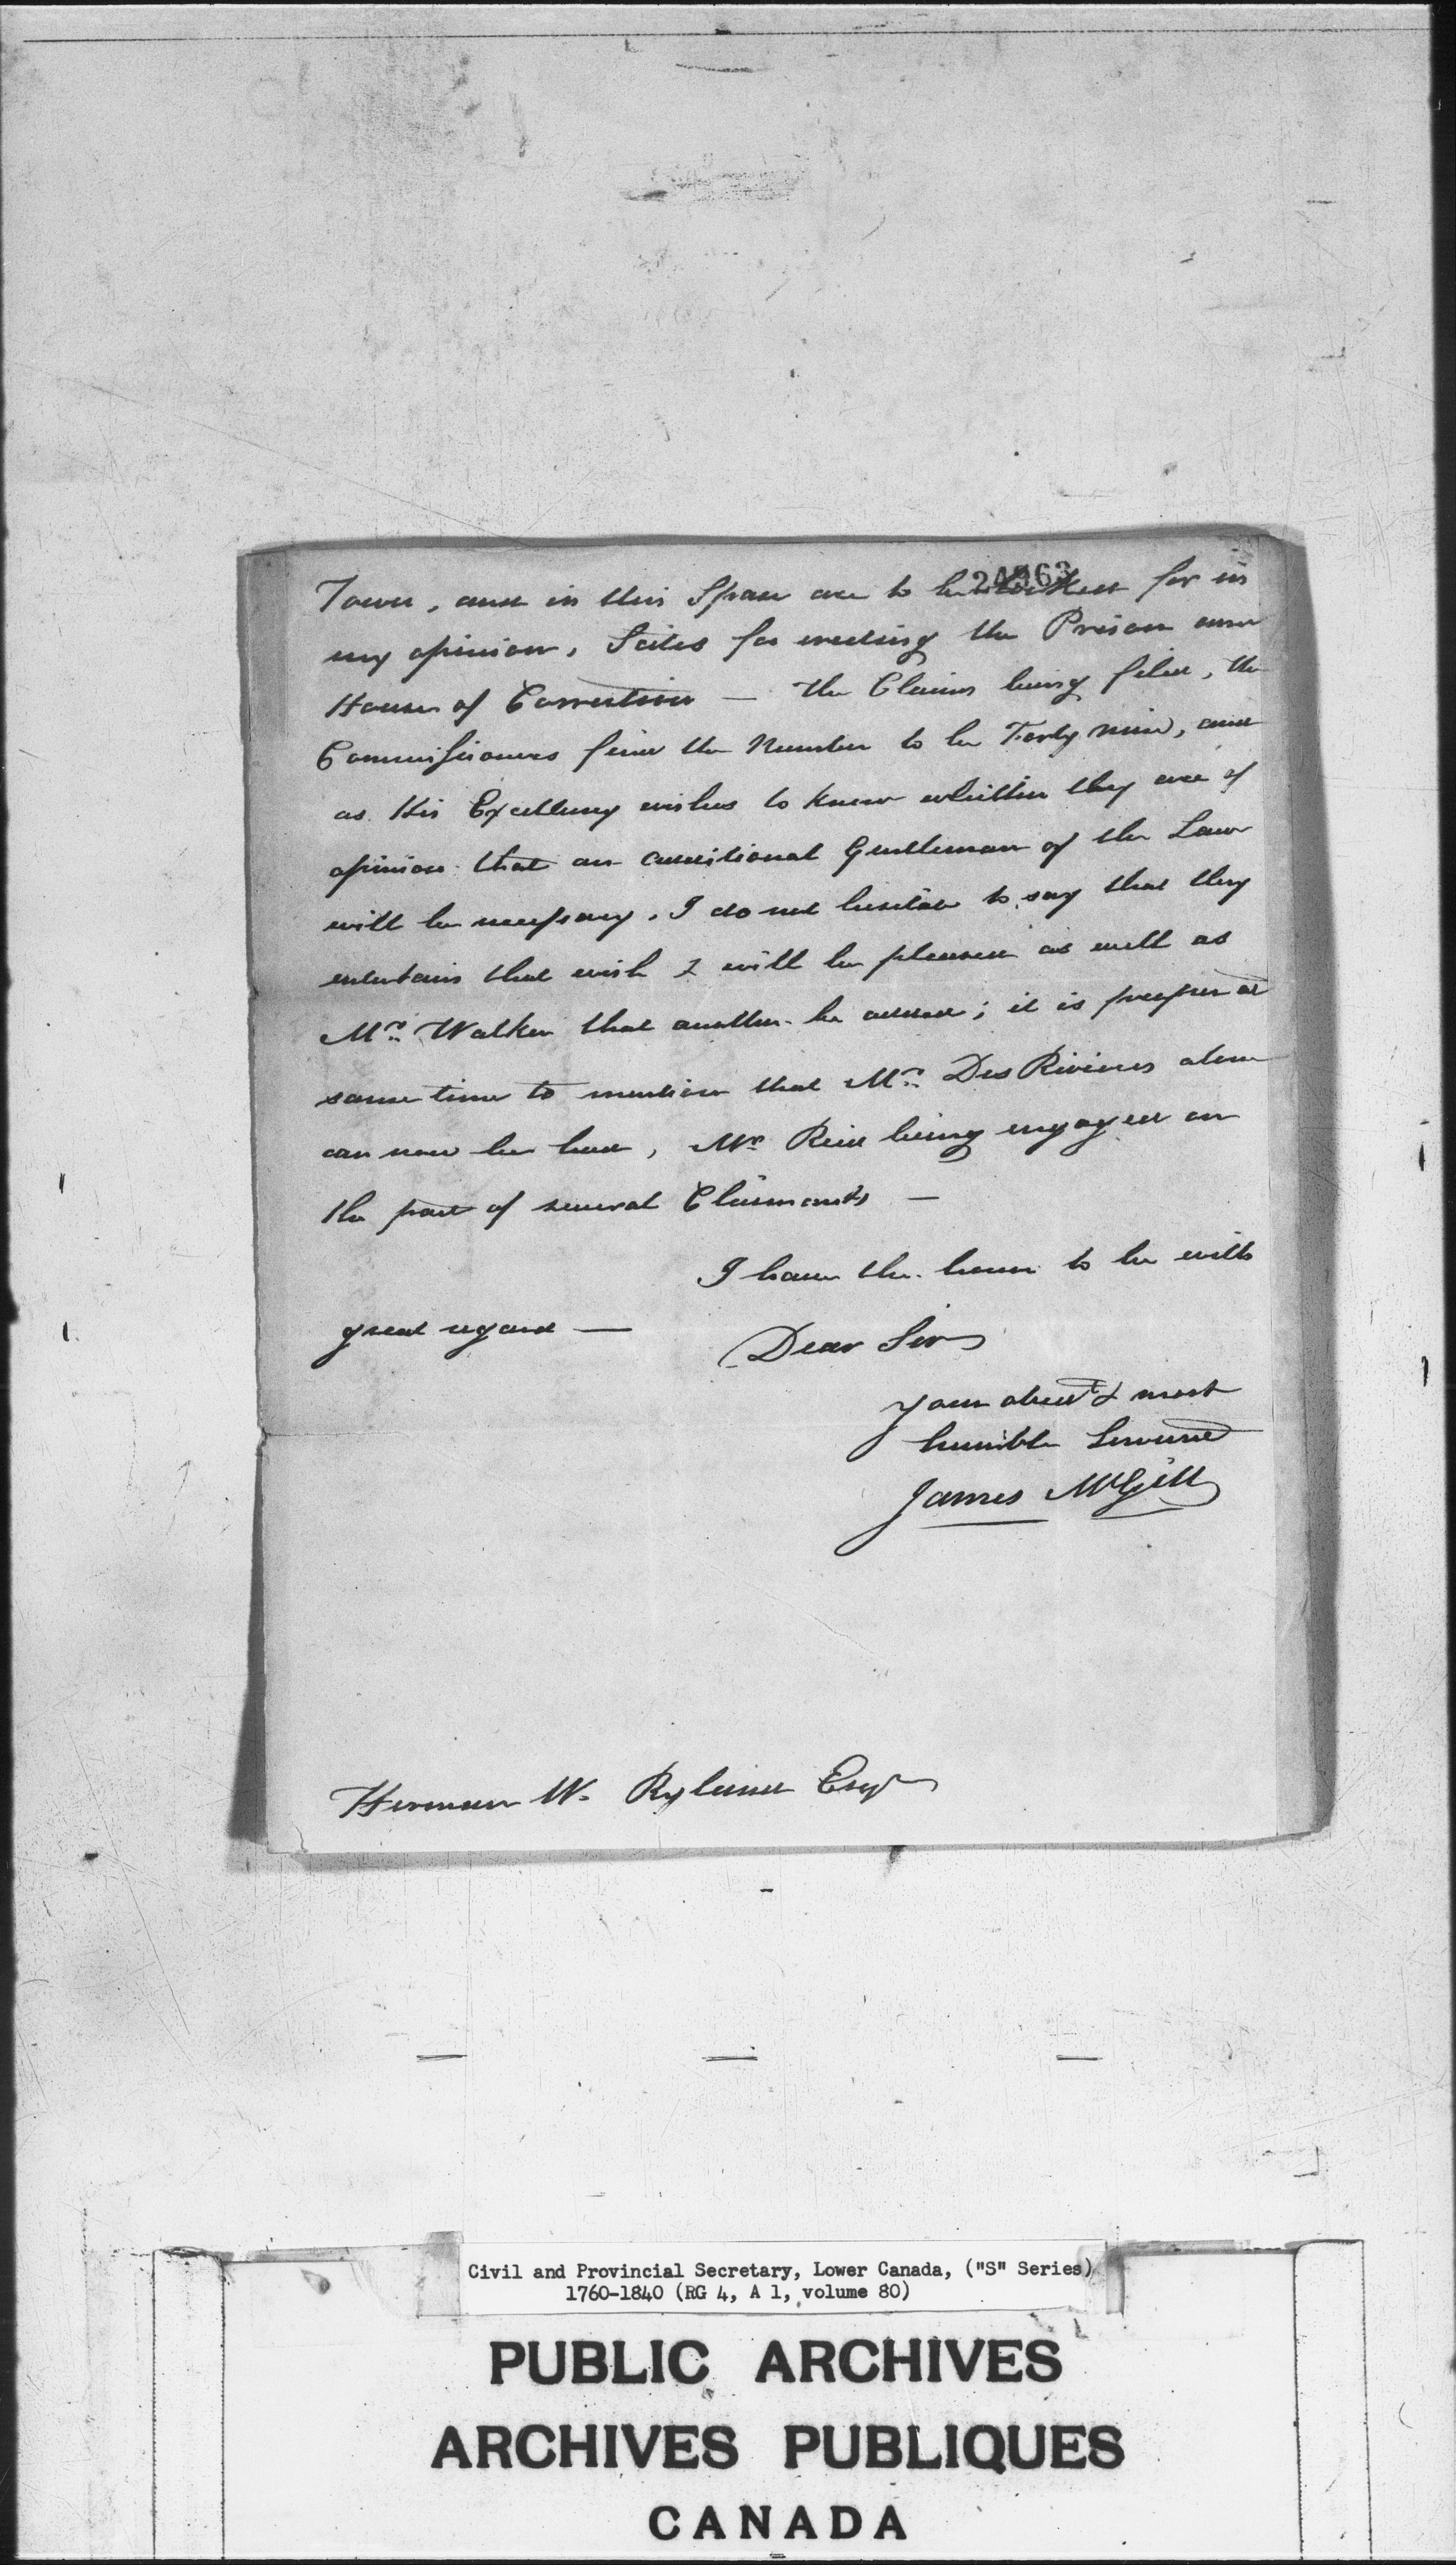 Town, and in this Space are to be looked for in
my opinion, Scites for erecting the Prison and
House of Correction — The Claims being filed, the
Commissioners find the Number to be Forty nine, and
as His Excellency wishes to know whether they are of
opinion that an additional Gentleman of the Law
will be necessary. I do not hesitate to say that they
entertain that wish & will be pleased as well as
Mr. Walker that another be added; it is proper at
same time to mention that Mr. Des Rivieres alone
can now be had, Mr Reid being engaged on
the part of several Claimants —
I have the honor to be with
great regard —
Dear Sir
your obedt & most
humble Servant
James McGill
Herman W. Ryland Esqr
Civil and Provincial Secretary, Lower Canada, ("S" Series)
1760-1840 (RG 4, A 1, volume 80)
PUBLIC ARCHIVES
ARCHIVES PUBLIQUES
CANADA